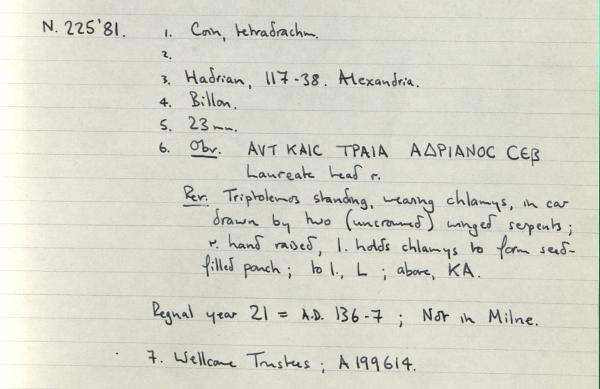 N. 225'81. 1. Coin, tetradrachm.
2.
3. Hadrian, 117-38. Alexandria.
4. Billon.
5. 23 mm.
6. Obv. ΑVΤ ΚΑΙC ΤΡΑΙΑ ΑΔΡΙΑΝΟC CЄB
Laureate head r.
Rev. Triptolemos standing, wearing chlamys, in car
drawn by two (uncrowned) winged serpents;
r. hand raised, l. holds chlamys to form seed-
filled pouch; to l., L ; above, KA.
Regnal year 21 = A.D. 136-7 ; Not in Milne.
7. Wellcome Trustees ; A199614.